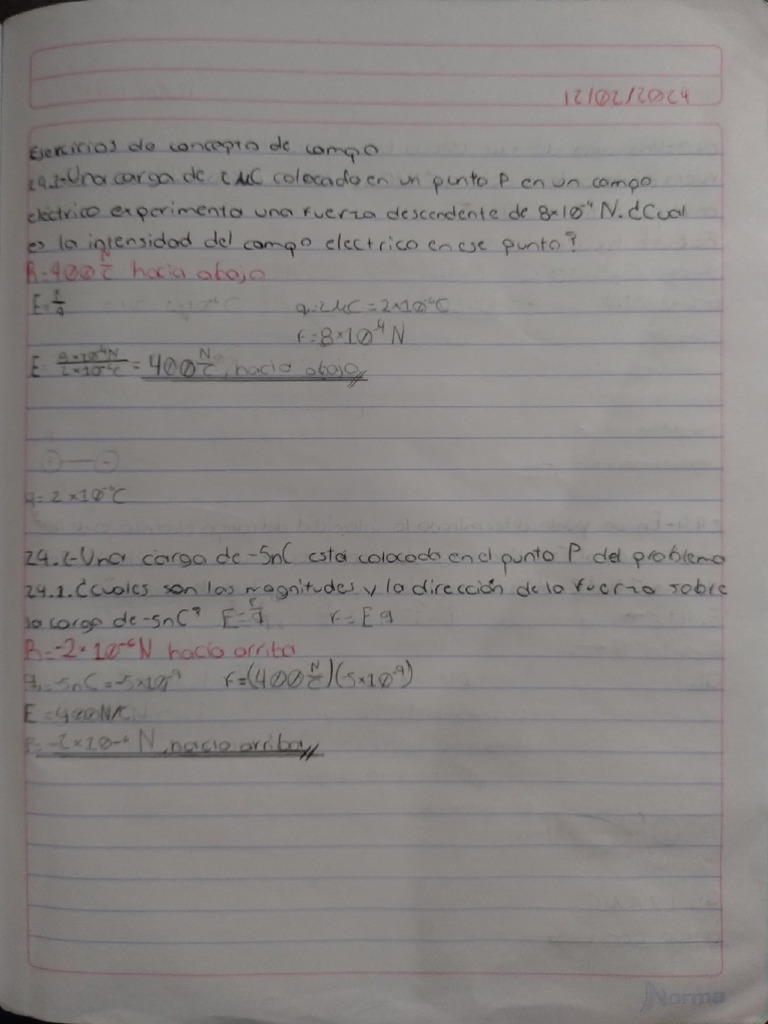 12/02/2024
Ejercicios de concepto de campo
24.1-Una carga de 2 µC colocada en un punto P en un campo
eléctrico experimenta una fuerza descendente de 8×10⁻⁴ N. ¿Cual
es la intensidad del campo electrico en ese punto?
R=400 N/C hacia abajo
E=F/q q=2µC=2×10⁻⁶C
F=8×10⁻⁴N
E= 8×10⁻⁴N/2×10⁻⁶C = 400 N/C, hacia abajo//
q=2×10⁻⁶C
24.2-Una carga de -5nC está colocada en el punto P del problema
24.1. ¿Cuales son las magnitudes y la dirección de la fuerza sobre
la carga de -5nC? E=F/q F=Eq
R=-2×10⁻⁶N hacia arriba
q=-5nC=-5×10⁻⁹ F=(400 N/C)(5×10⁻⁹)
E=400N/C
F=-2×10⁻⁶ N, hacia arriba//
Norma